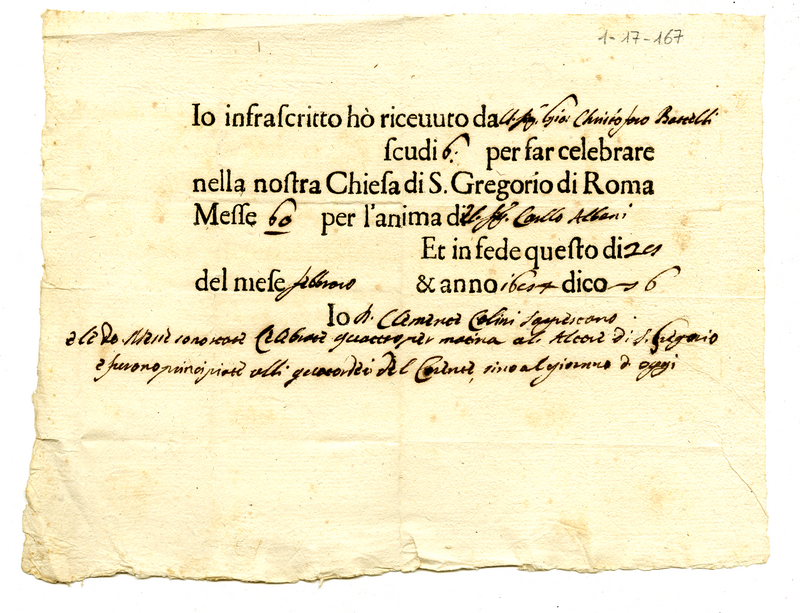 1-17-167
Io infraſcritto hò riceuuto da Chriſtoforo
ſcudi 6: per far celebrare
nella noſtra Chieſa di S. Gregorio di Roma
Meſſe 60 per l'anima di Carllo Albani
Et in fede queſto di
del meſe febbraro & anno dico 6
Io D. Clemente Sagreſtano
e le Meſſe ſono ſtate Celebrate quattro per matina all Altare di S. Gregorio
e furono principiate alli quatordeci del Corente, ſino al giorno d oggi